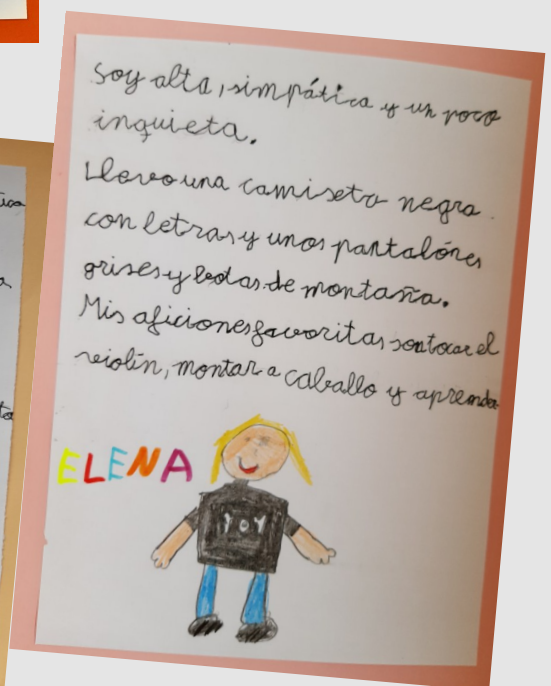 Soy alta, simpática y un poco
inquieta.
Llevo una camiseta negra.
con letras y unos pantalónes
grises y botas de montaña.
Mis aficiones favoritas son tocar el
violín, montar a caballo y aprender
ELENA